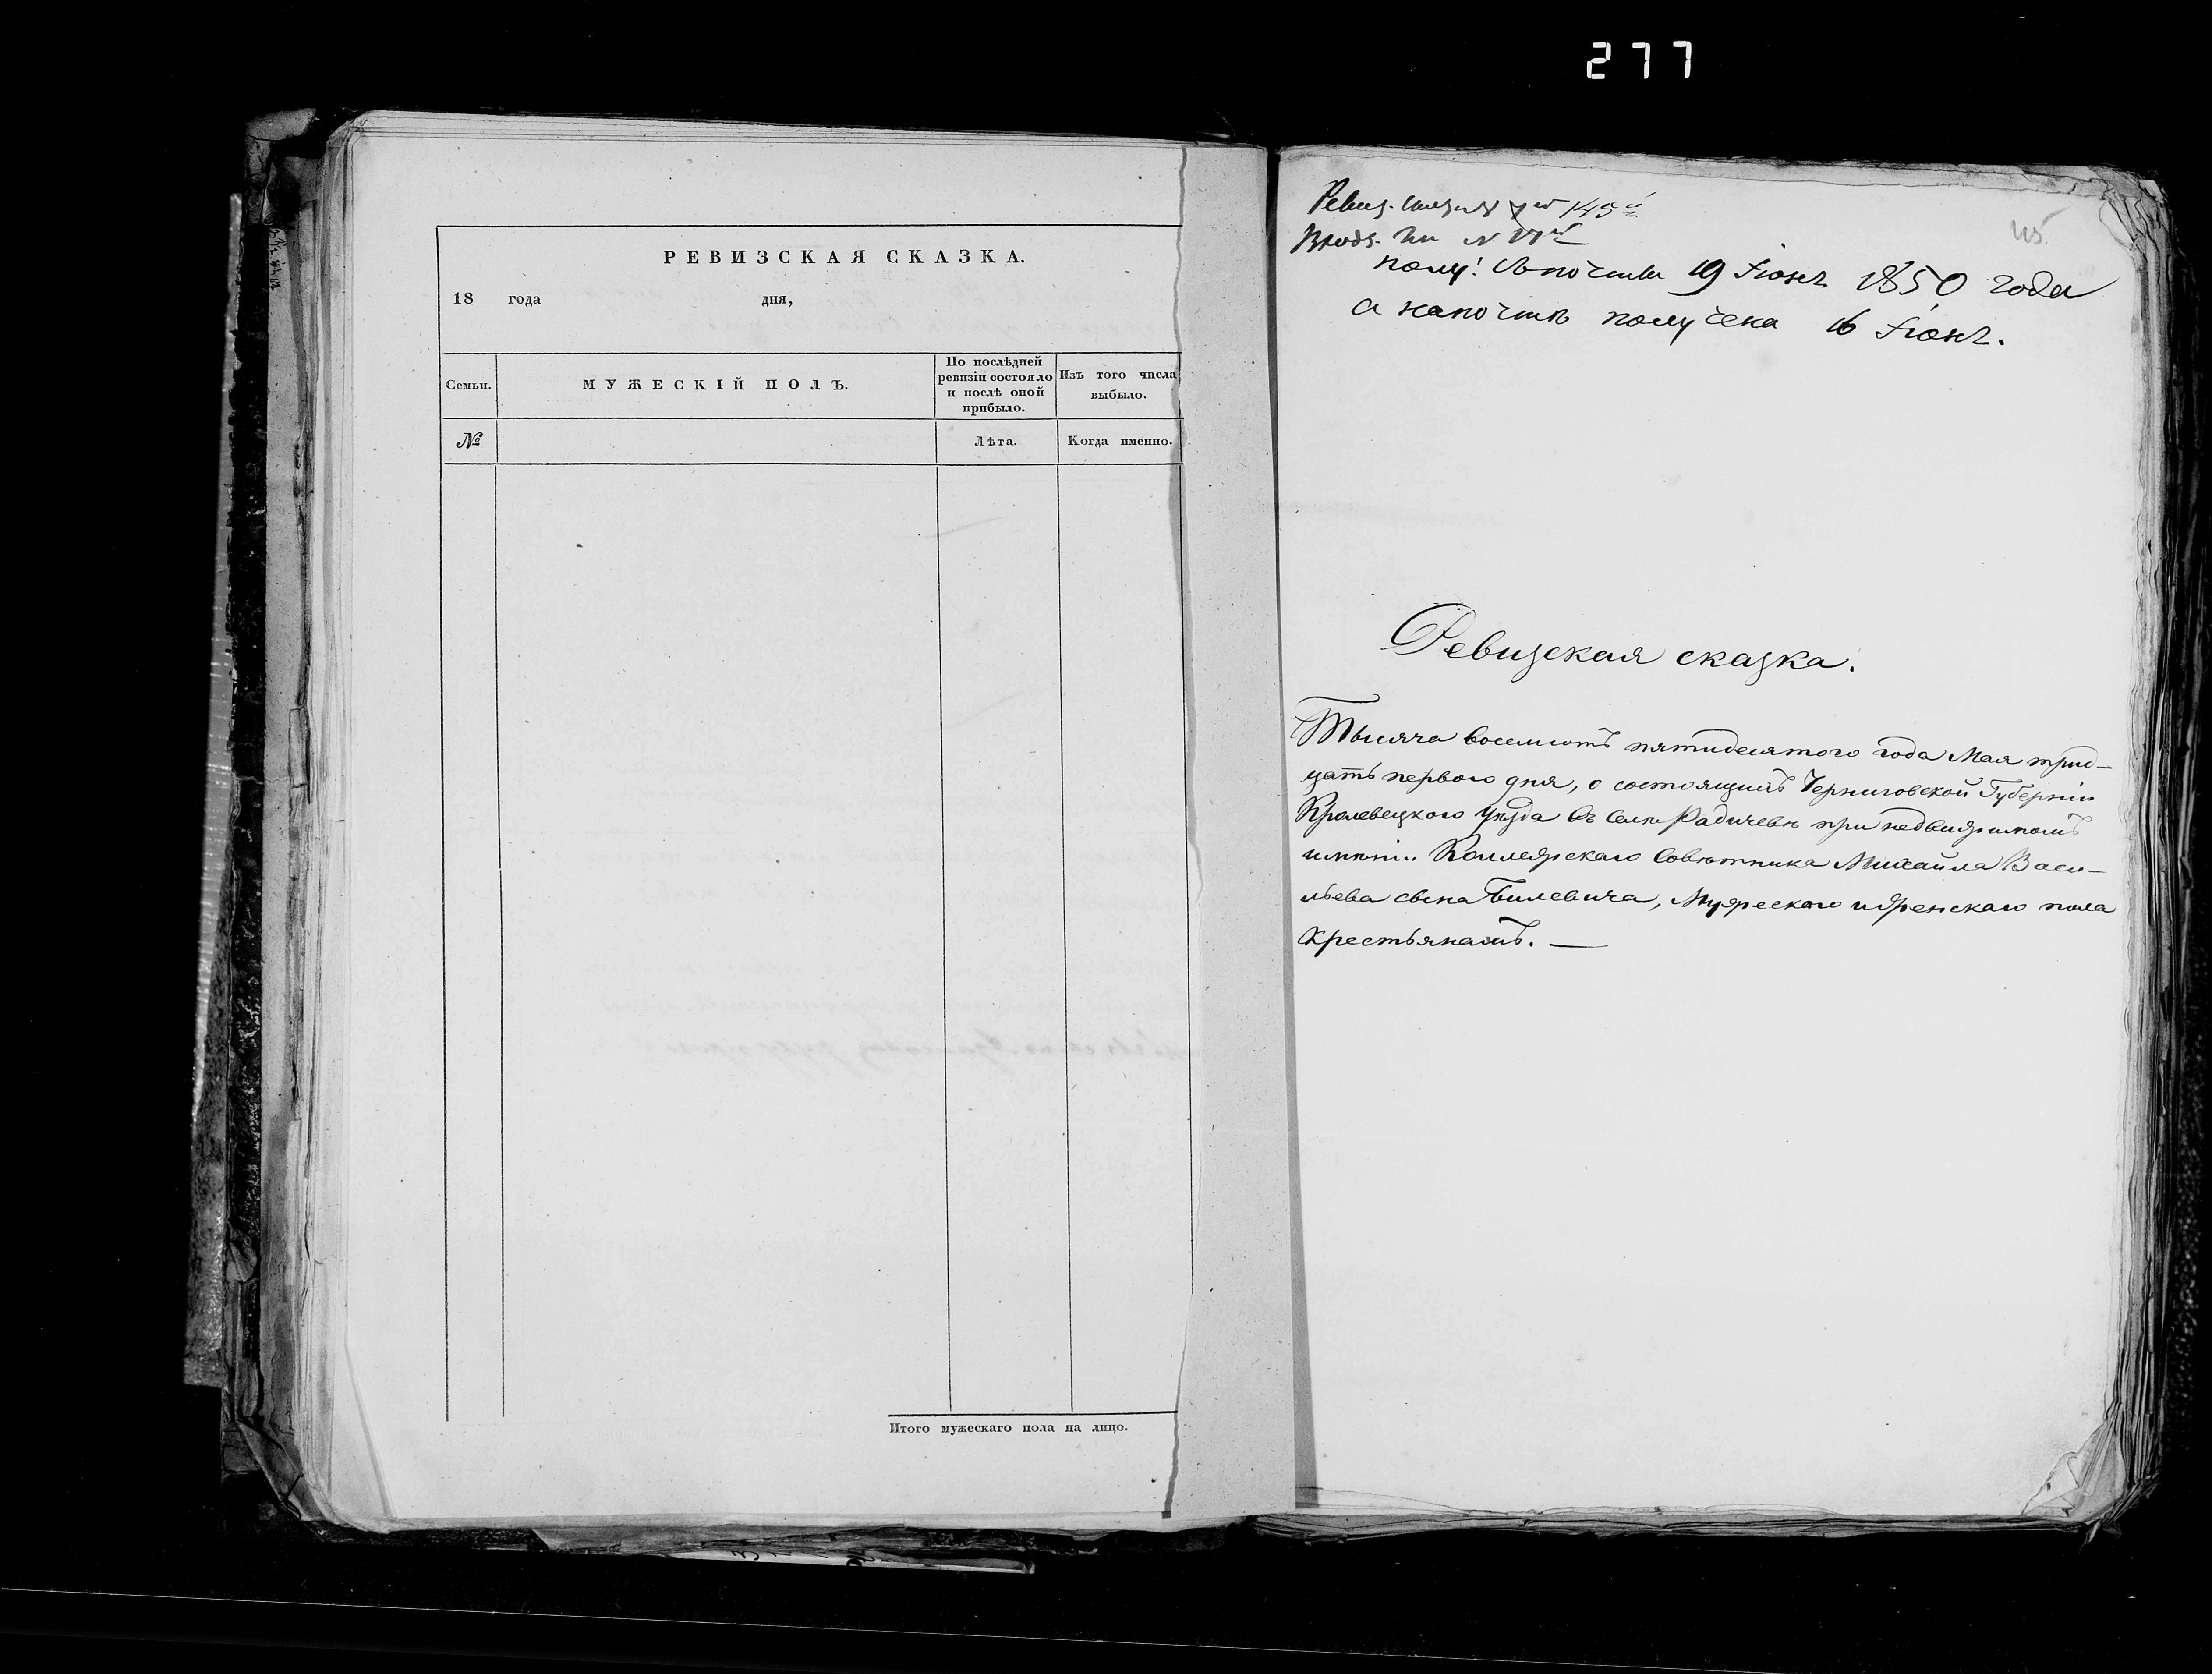 277
РЕВИЗСКАЯ СКАЗКА.
18 года дня,
Семьи.
МУЖЕСКІЙ ПОЛЪ.
По послѣдней
ревизіи состояло
и послѣ оной
прибыло.
Изъ того числа
выбыло.
№
Лѣта.
Когда именно.
Итого мужескаго пола на лицо.
Ревиз. 145й
45
Входя. №
полу: съ почты 19 Іюня 1850 года
а на почтѣ получена 16 Іюня.
Ревизская сказка.
Тысяча восемьсотъ пятидесятого года Мая трид-
цать первого дня, о состоящихъ Черниговской Губерніи
Кролевецкого Уѣзда въ Селѣ Радичевѣ при недвижимомъ
имѣніи Коллежскаго Совѣтника Михайла Васи-
льева сына Билевича, Мужескаго и женскаго пола
крестьянахъ. —